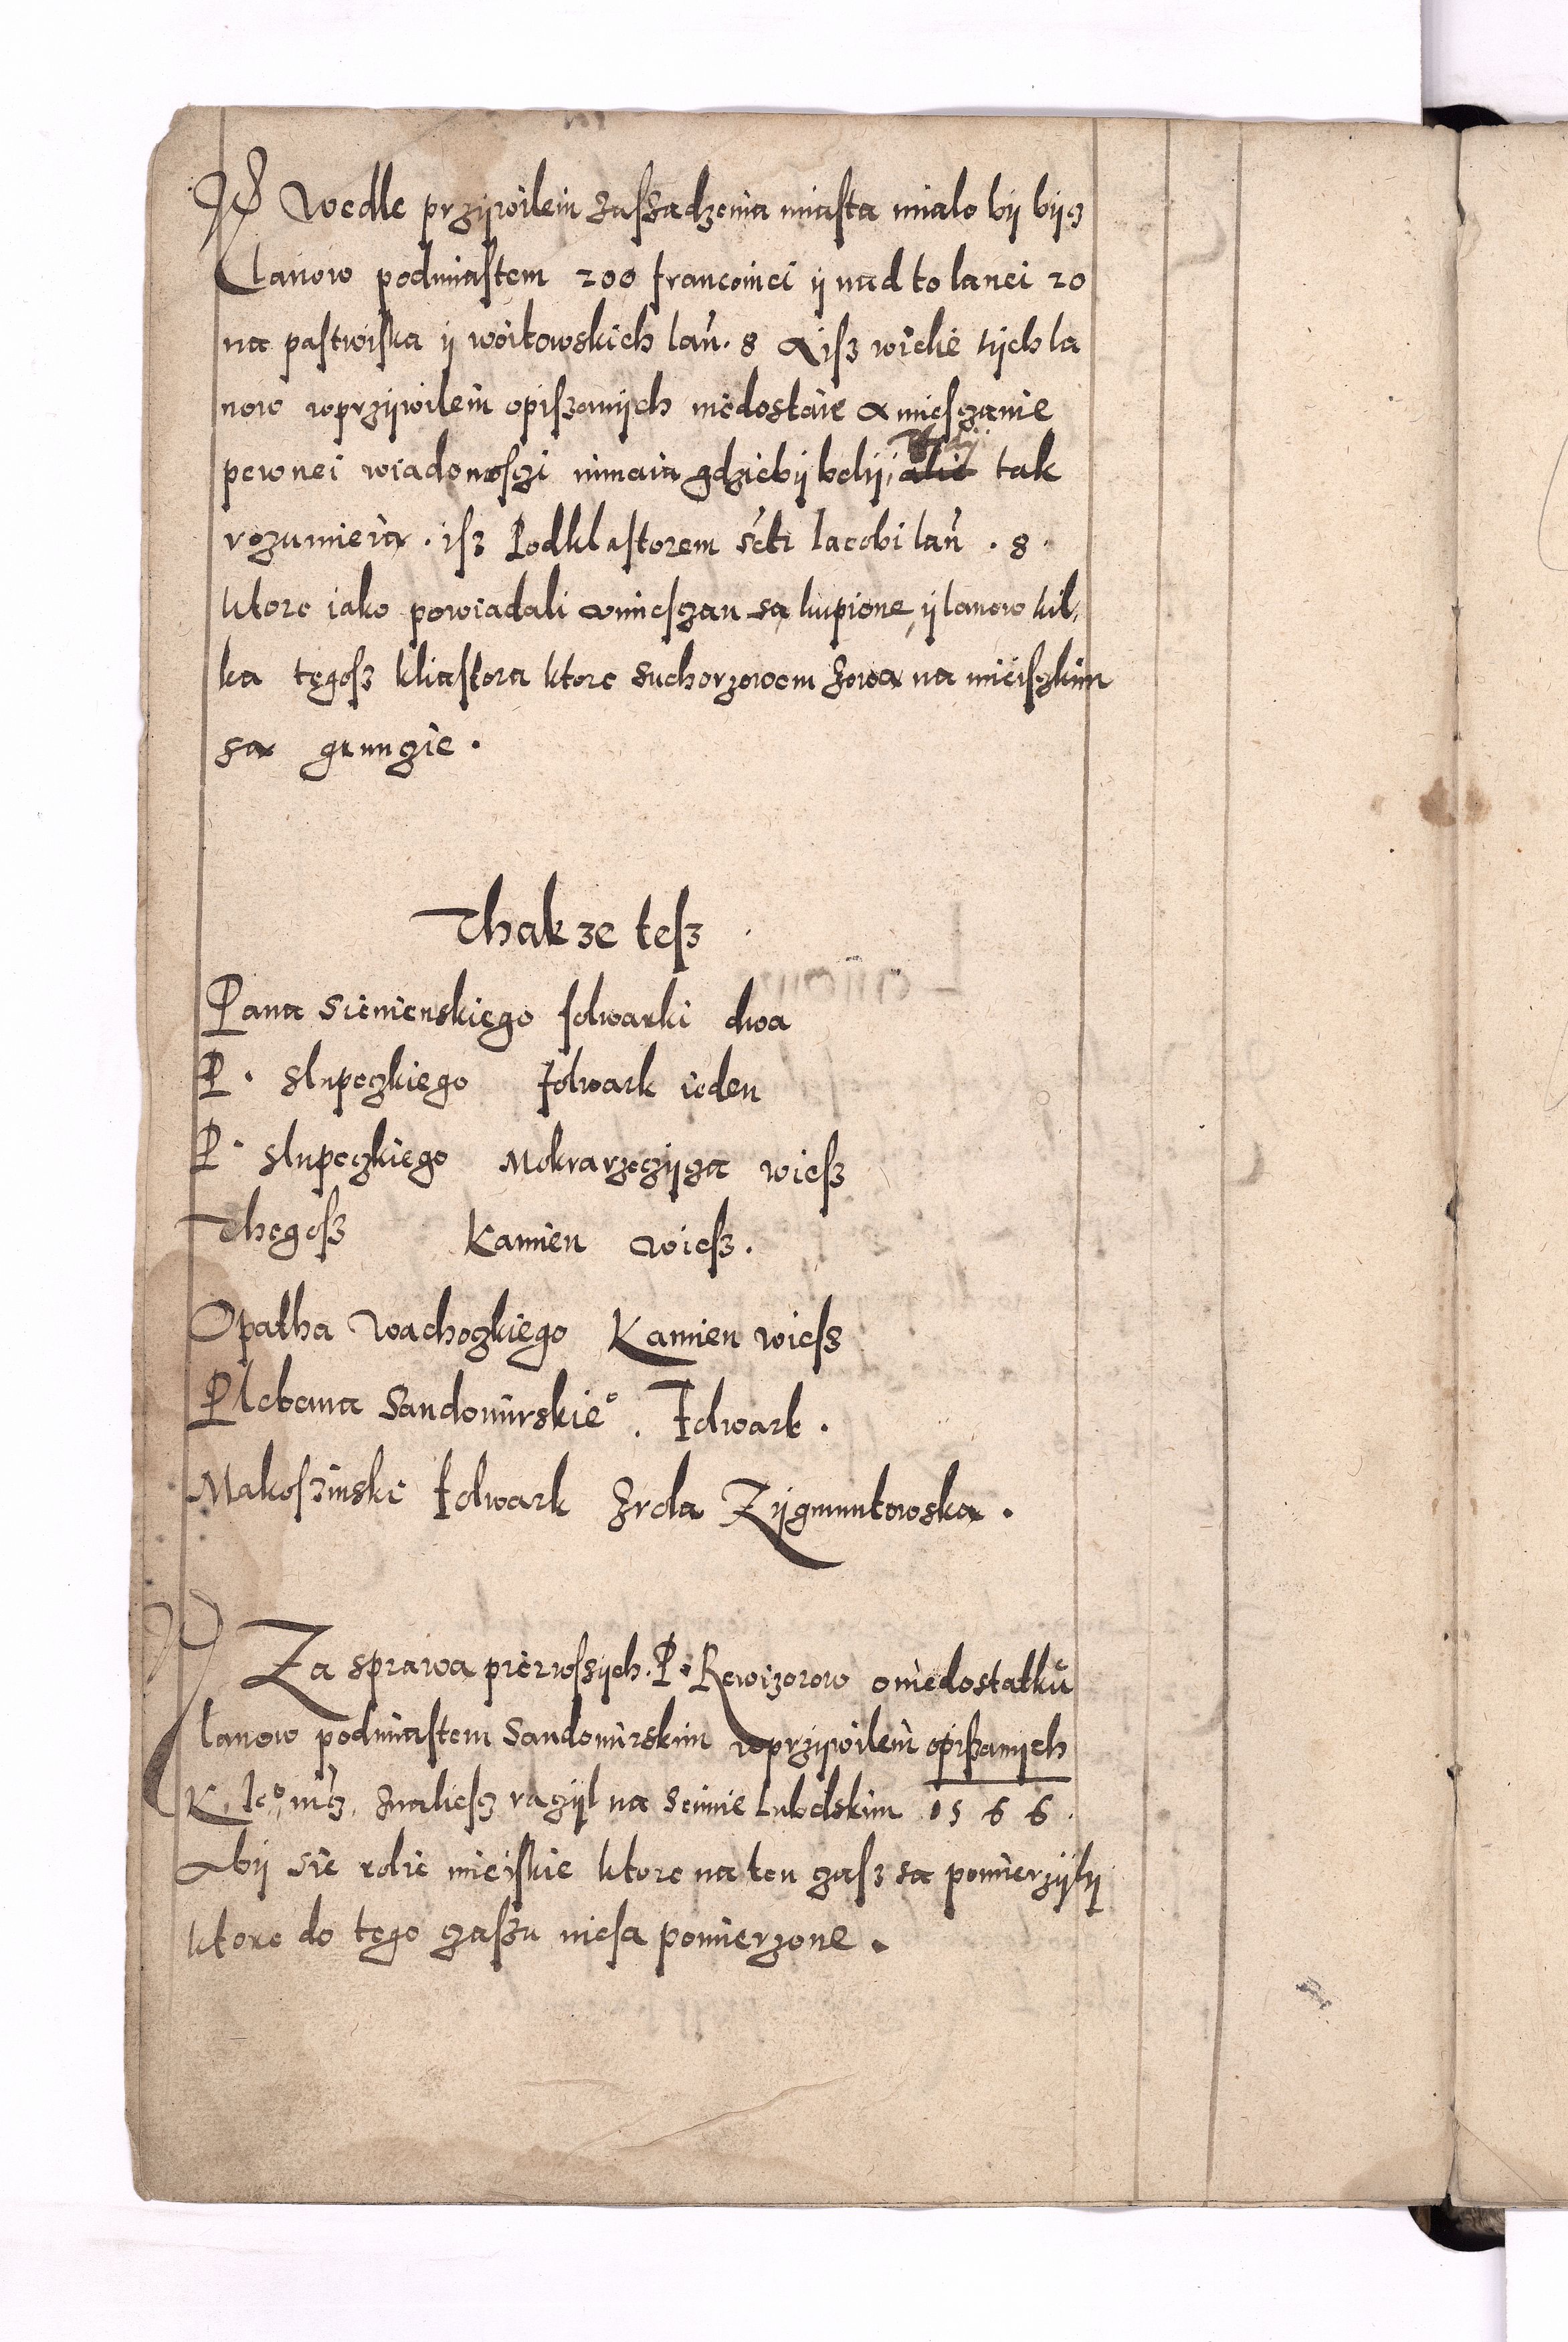 Wedle przijwileiu zaszadzenia miasta mialo bij bijcz
lanow podmiastem 200 franconici ij nad to lanei 20
na pastwiska ij woitowskich lan. 8 A isz wielie tijch la
now wprzijwileiu opiszanijch niedostaie a mieszczanie
pewnei wiadomosczi nimaia gdziebij belij, alie tak
rozumieia. isz Podklastorem scti Iacobi lan. 8.
ktore iako powiadali v mieszczan sa kupione, ij lanow kil,
ka tegosz kliastora ktore Suchorzowem zowa na mieiszkim
sa grunczie.
Thak ze tesz
Pana Sienienskiego folwarki dwa
P. Slupeczkiego folwark ieden
P. Slupeczkiego Mokrarzeczijcza wiesz
Thegosz Kamien wiesz.
Opatha Wachoczkiego Kamien wiesz
Plebana Sandomirskieo. Folwark.
Makoszinski Folwark Zrola Zijgmuntowska.
Za sprawa pierwssijch. P. Rewizorow oniedostatku
lanow podmiastem Sandomirskim wprzijwileiu opiszanijch
K. Ieo mcz, znaliescz raczijl na Seimie Lubelskim 1566.
Abij sie rolie mieiskie ktore na ten czasz sa pomierzijlij
ktore do tego czaszu niesa pomierzone.